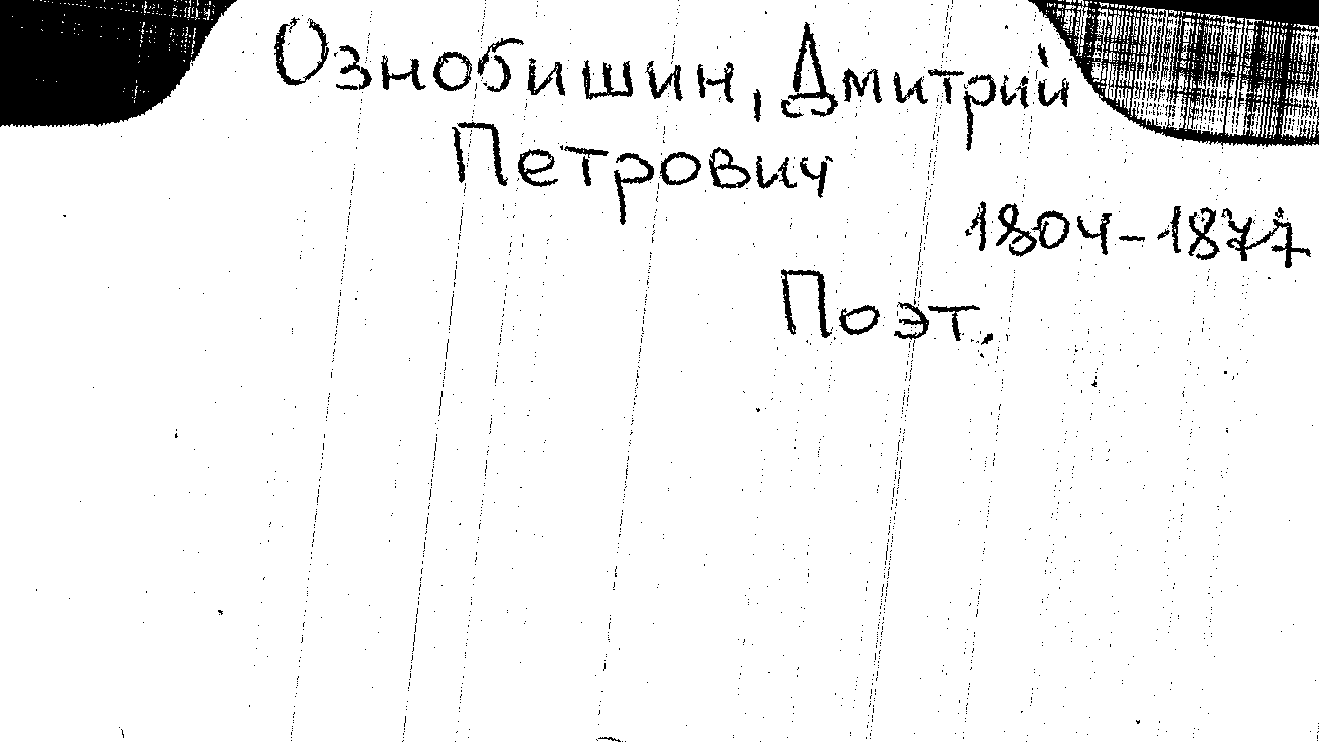 Ознобишин, Дмитрий
Петрович
1804-1877
Поэт.